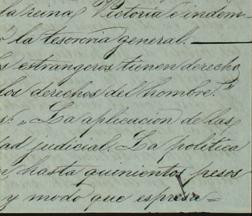 la reina Victoria é indem
o la tesoreria general.
s estrangeros tienen derecho
los derechos del hombre."
s: "La aplicacion de las
ad judicial. La politica
n, hasta quinientos pesos
y modo que espresa